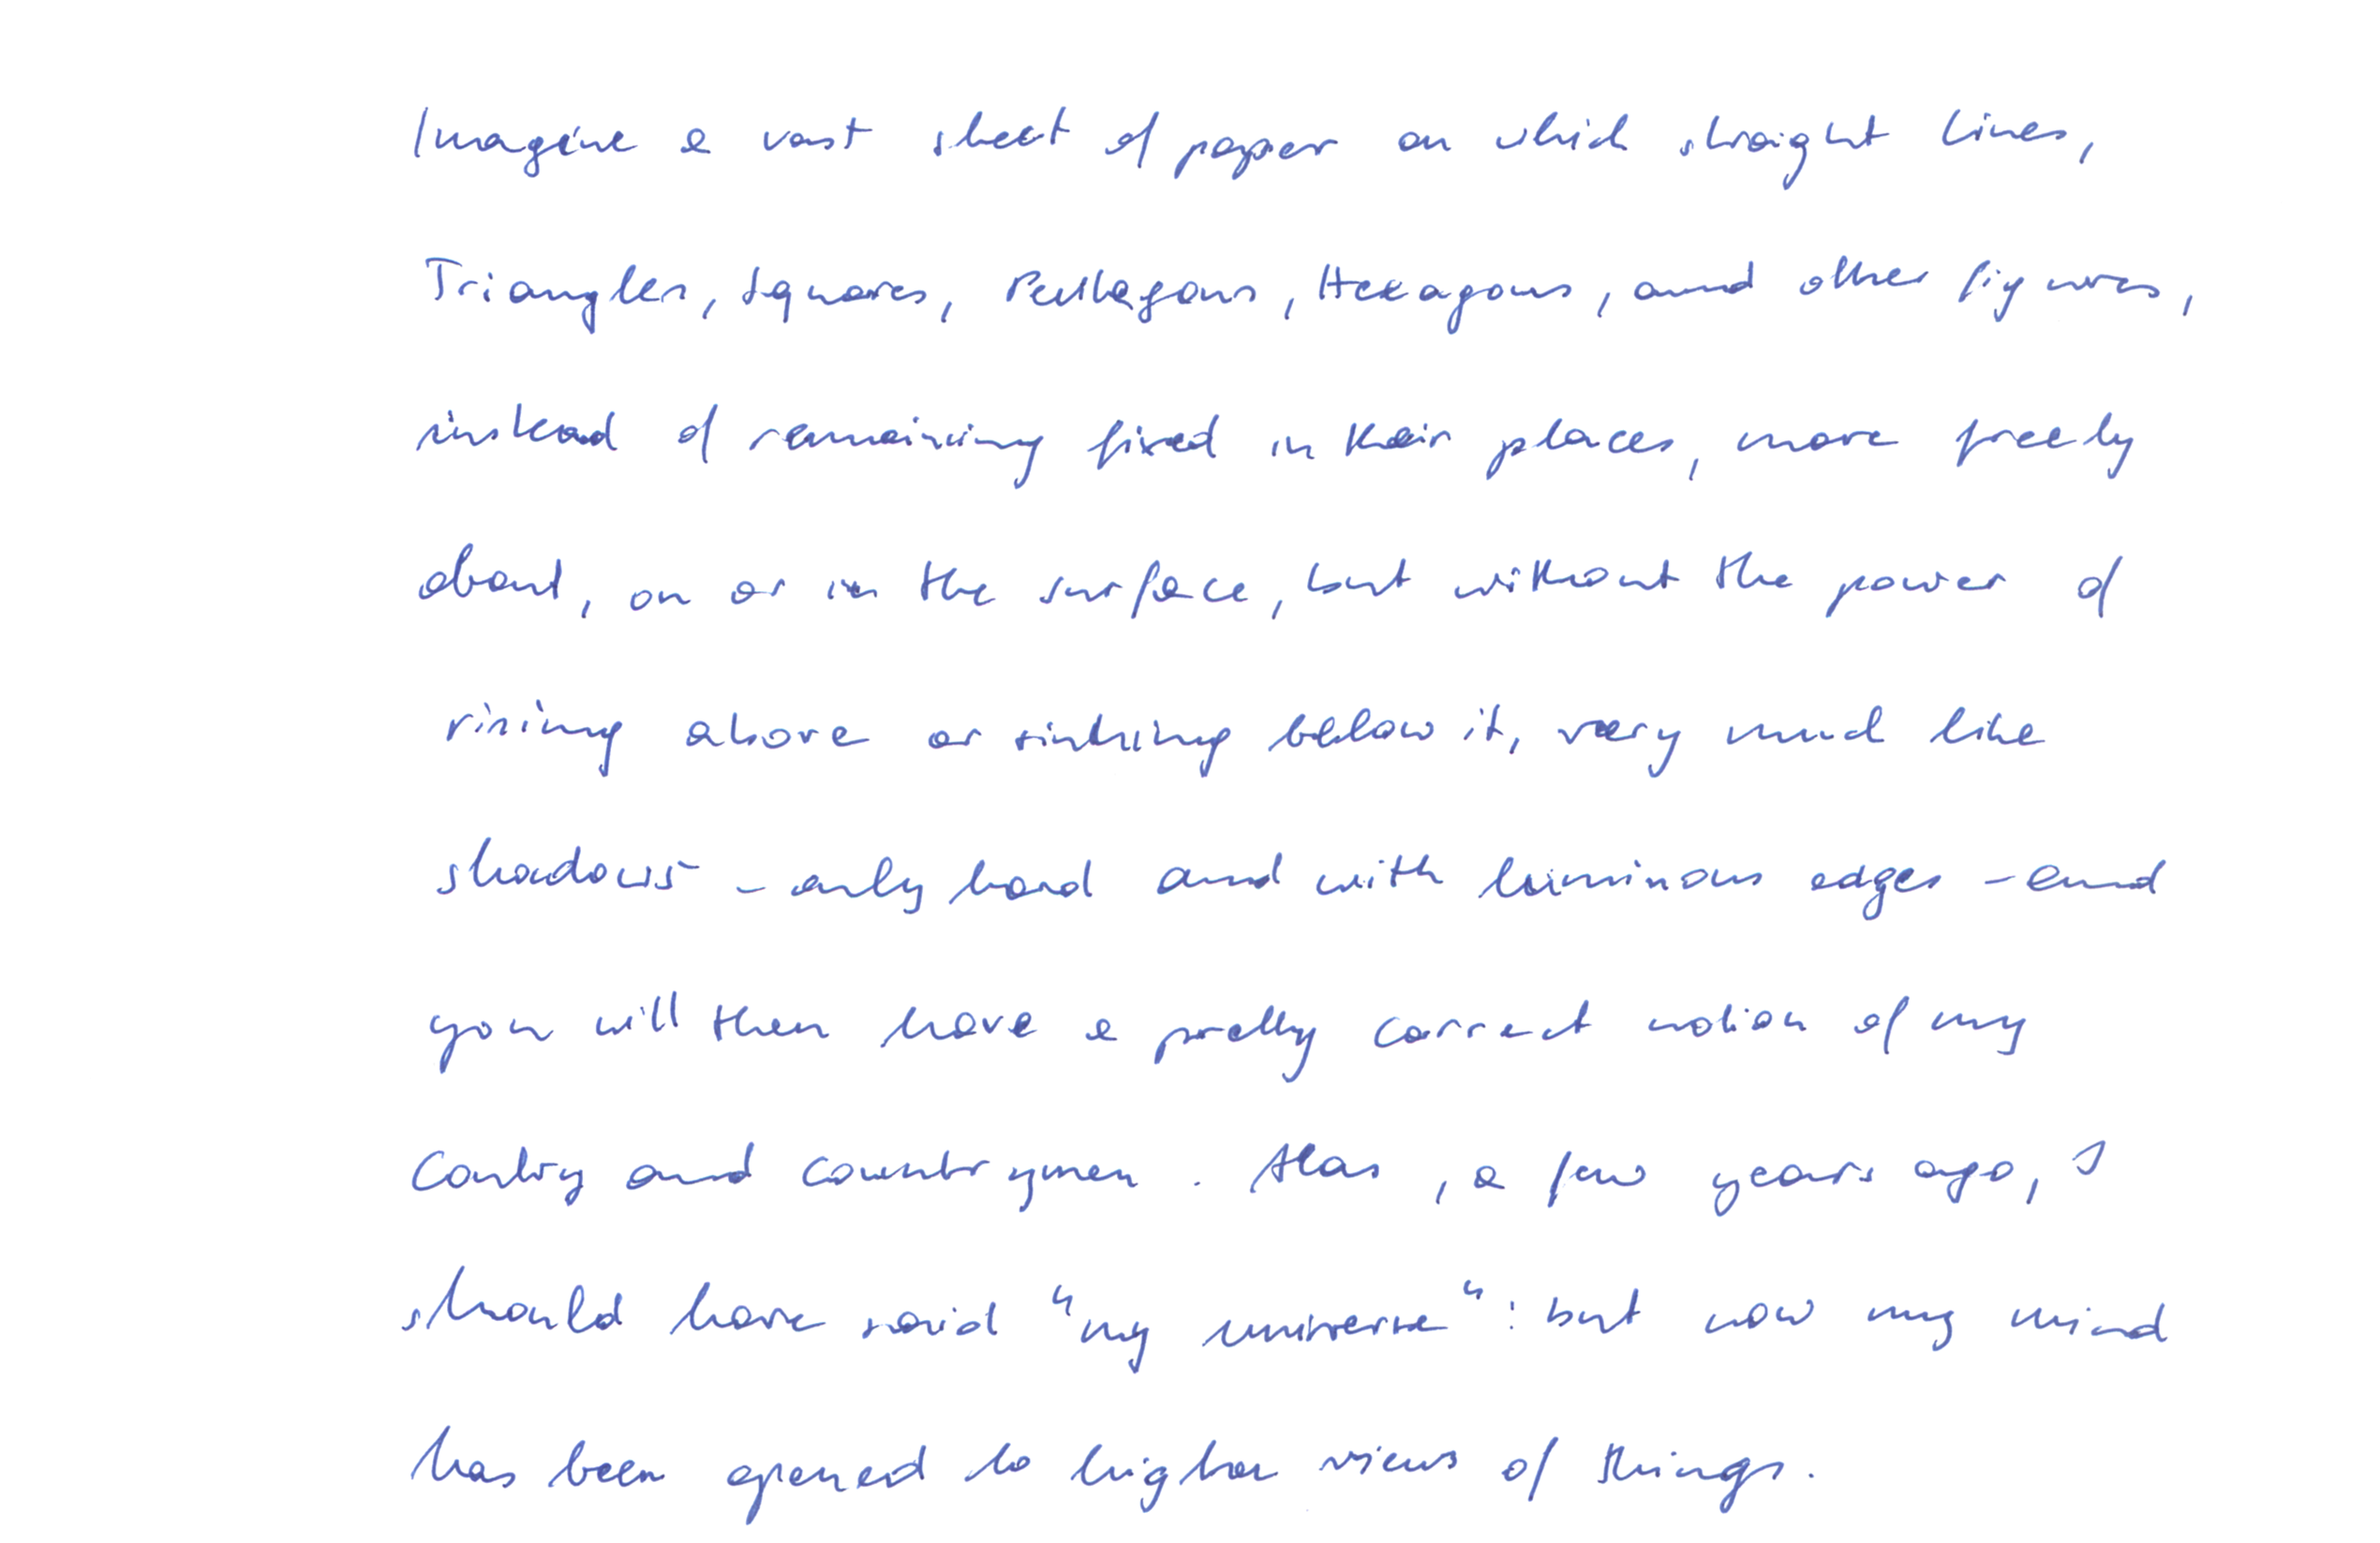 Imagine a vast sheet of paper on which straight lines,
Triangles, Squares, Pentagons, Hexagons, and other figures,
instead of remaining fixed in their places, move freely
about, on or in the surface, but without the power of
rising above or sinking below it, very much like
shadows - only hard and with luminous edges - and
you will then have a pretty correct notion of my
contry and countrymen. Alas, a few years ago, I
should have said "my universe": but now my mind
has been opened to higher views of things.